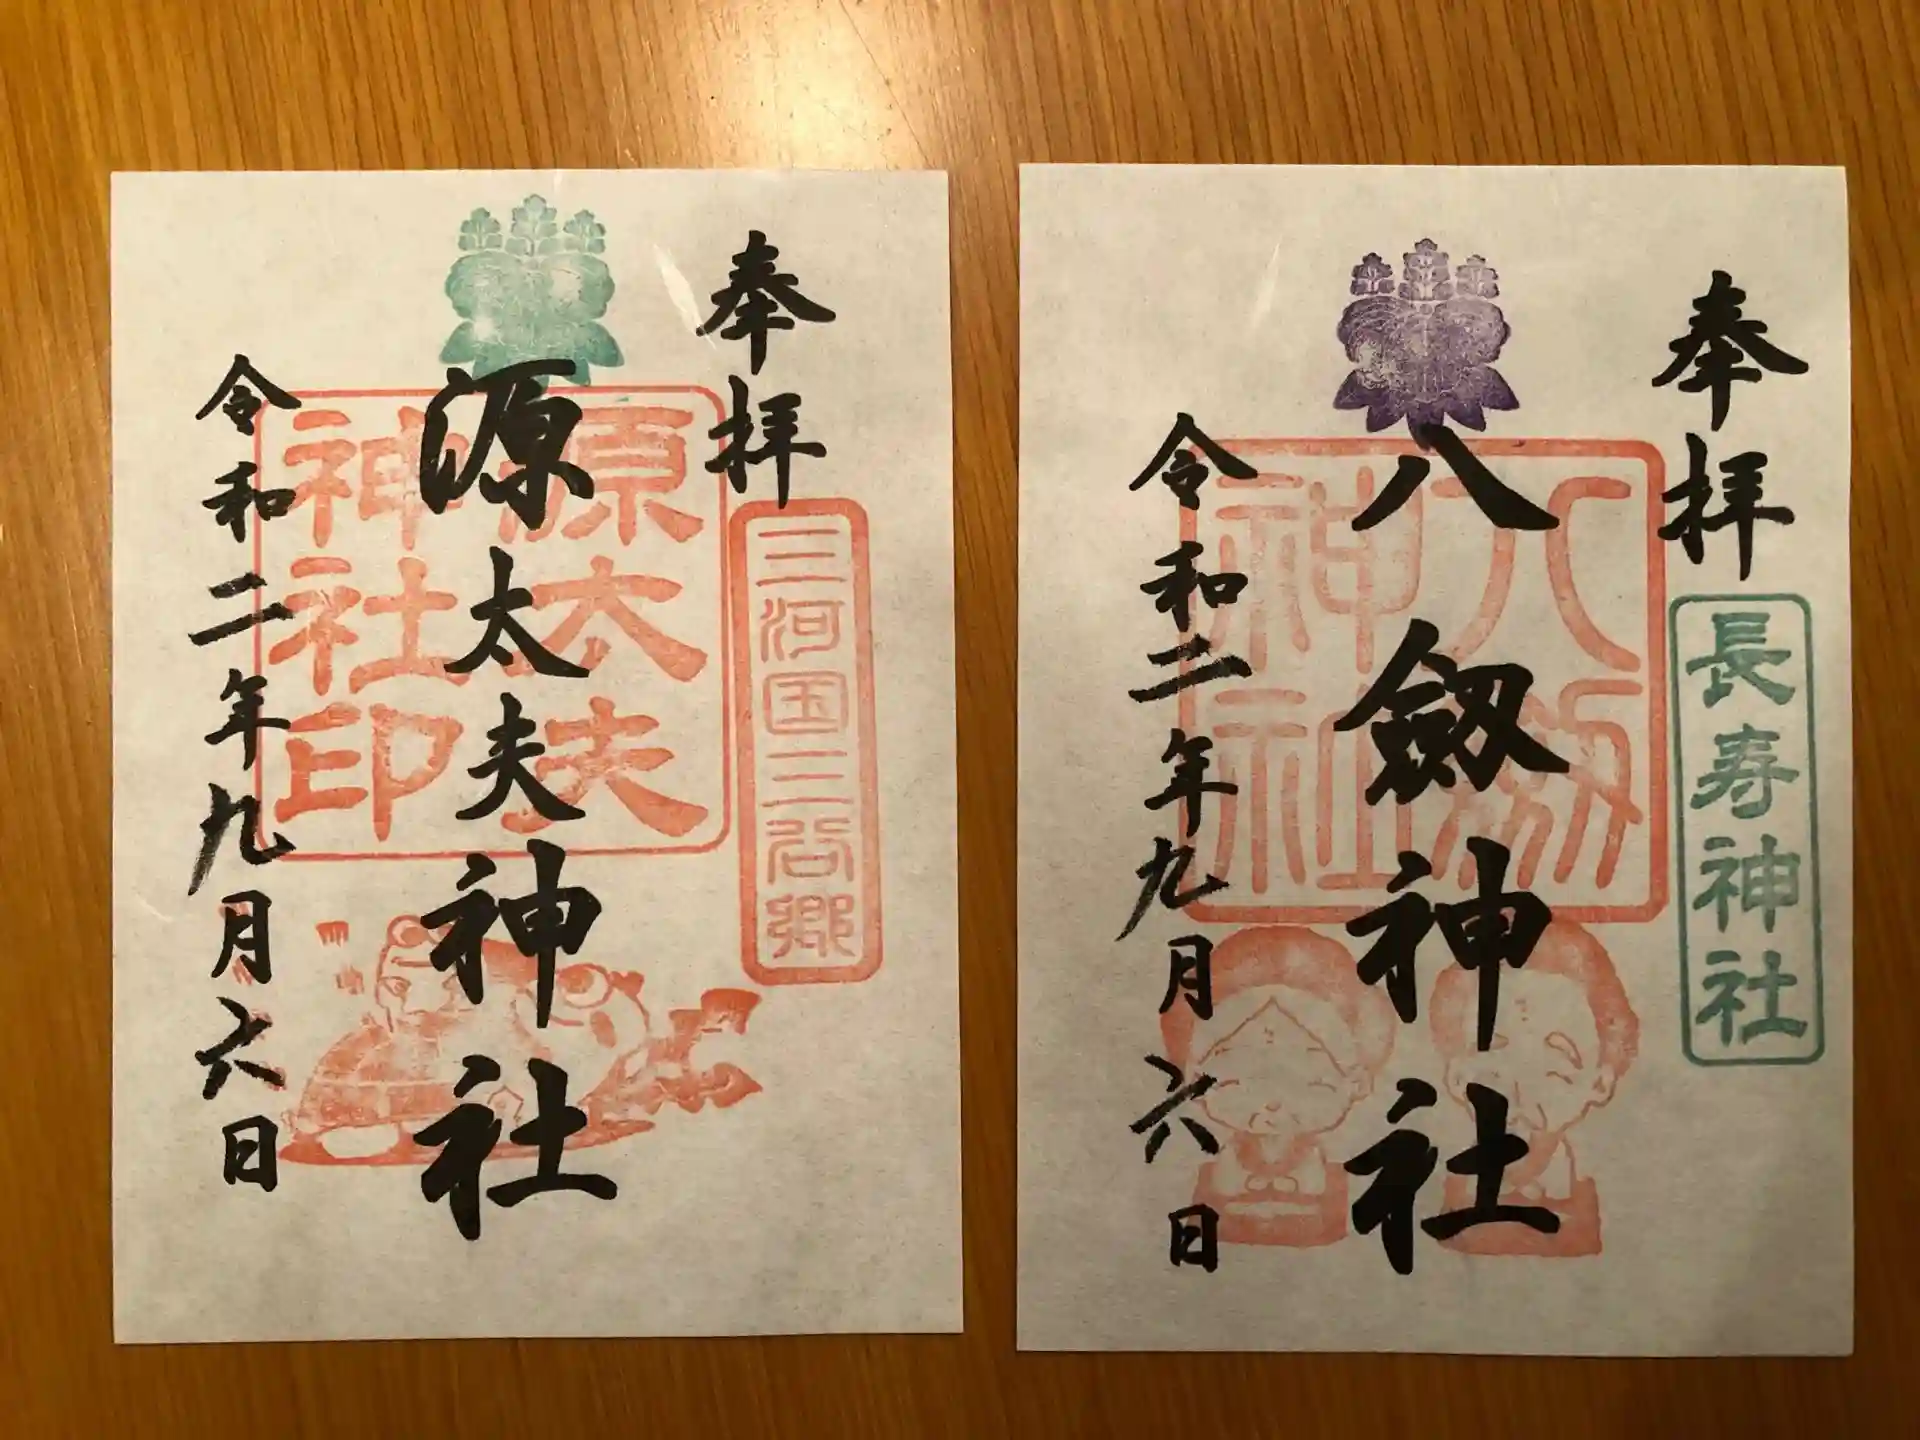 奉拝
三河国三谷郷
源太夫神社
源太夫
神社印
令和二年九月六日
奉拝
長寿神社
八劔神社
八劔
神社
令和二年九月六日